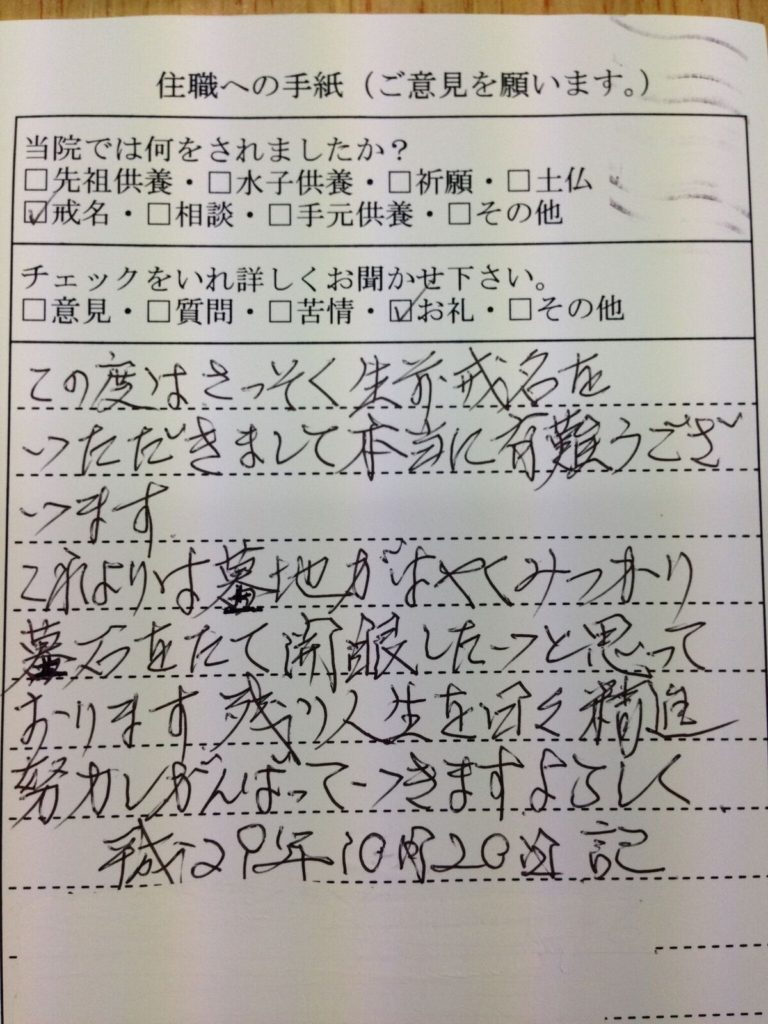 住職への手紙（ご意見を願います。）
当院では何をされましたか？
□先祖供養・□水子供養・□祈願・□土仏
☑戒名・□相談・□手元供養・□その他
チェックをいれ詳しくお聞かせ下さい。
□意見・□質問・□苦情・☑お礼・□その他
この度はさっそく生前戒名を
いただきまして本当に有難うござ
います
これよりは墓地がはやくみつかり
墓石をたて開眼したいと思って
おります残り人生を日々精進
努力しがんばっていきますよろしく
平成29年10月20日 記